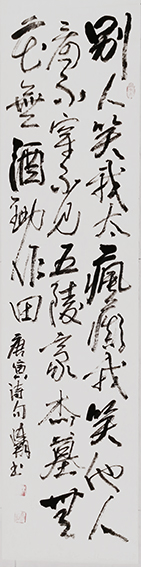 别人笑我太瘋癲我笑他人
看不穿不见五陵豪杰墓无
花無酒鋤作田 唐寅诗句 书